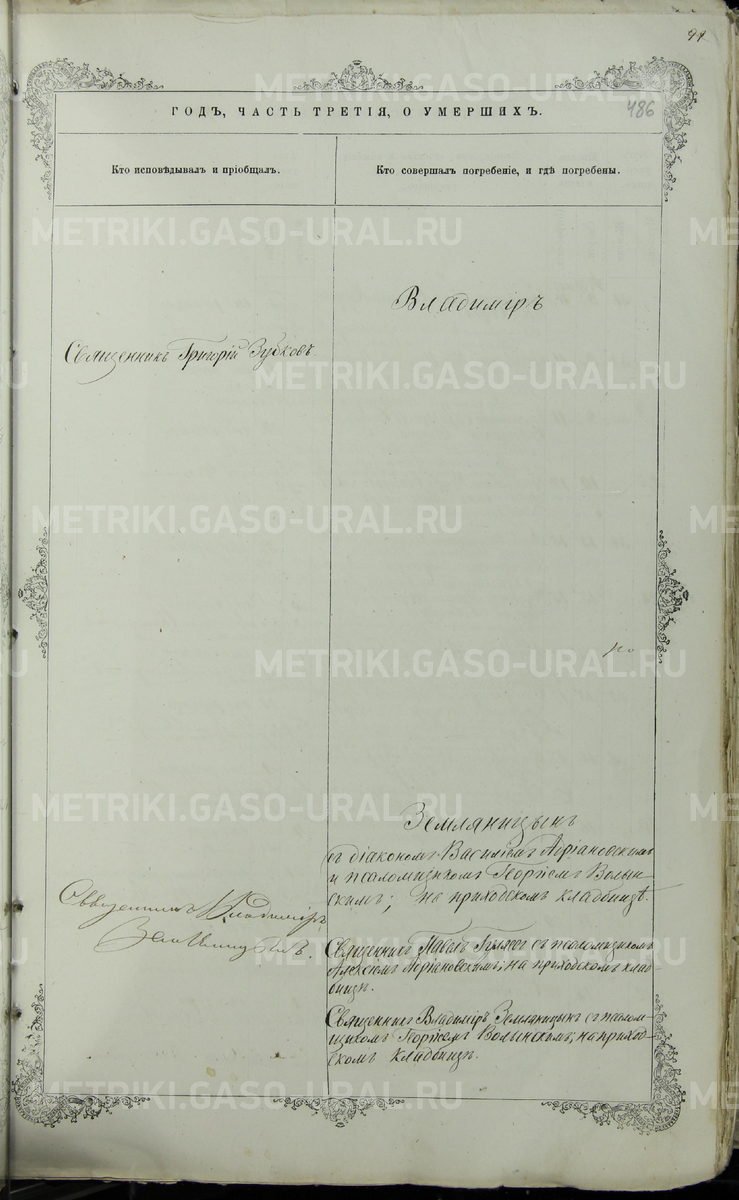 486
ГОДЪ, ЧАСТЬ ТРЕТІЯ, О УМЕРШИХЪ.
Кто исповѣдывалъ и пріобщалъ.
Кто совершалъ погребеніе, и гдѣ погребены.
METRIKI.GASO-URAL.RU
Владиміръ
Священникъ Григорій Зубковъ.
по
Земляницынъ
съ діакономъ Василіемъ Адріановскимъ
и псаломщикомъ Георгіемъ Волын-
скимъ; на приходскомъ кладбищѣ.
Священникъ Владиміръ
Земляницынъ.
Священникъ Павелъ съ псаломщикомъ
Алексіемъ Адріановскимъ; на приходскомъ клад-
бищѣ.
Священникъ Владиміръ Земляницынъ съ псалом-
щикомъ Георгіемъ Волынскимъ; на приход-
скомъ кладбищѣ.